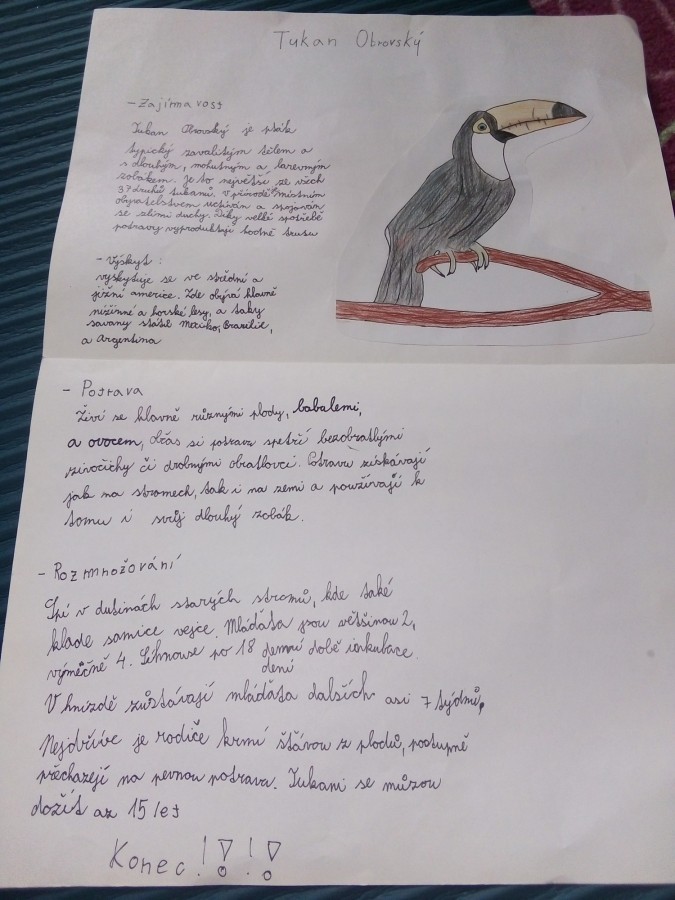 Tukan Obrovský
- Zajímavost
Tukan Obrovský je pták
typický zavalitým tělem a
s dlouhým, mohutným a barevným
zobákem. Je to největší ze všech
37 druhů tukanů. V přírodě místním
obyvatelstvem uctíván a spojován
se zlými duchy. Díky velké spotřebě
potravy vyprodukují hodně trusu
- Výskyt :
vyskytuje se ve střední a
jižní americe. Zde obývá hlavně
nížinné a horské lesy, a taky
savany států Mexiko, Brazílie,
a Argentina
- Potrava
Živí se hlavně různými plody, bobulemi,
a ovocem, občas si potravu zpestří bezobratlými
živočichy či drobnými obratlovci. Potravu získávají
jak na stromech, tak i na zemi a používají k
tomu i svůj dlouhý zobák.
- Rozmnožování
Spí v dutinách starých stromů, kde také
klade samice vejce. Mláďata jsou většinou 2,
výměčně 4. Líhnou se po 18 denní době inkubace
dení
V hnízdě zůstávají mláďata dalších asi 7 týdnů,
Nejdříve je rodiče krmí šťávou z plodů, postupně
přecházejí na pevnou potravu. Tukani se můžou
dožít až 15 let
Konec !!!!